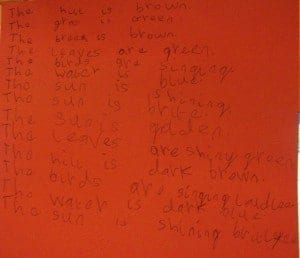 The hill is brown.
The gras is green
The bread is brown.
The leaves are green.
The birds are singing.
The water is blue.
The sun is shining.
The sun is golden.
The leaves are shiny green
The hill is dark brown.
The birds are singing
The water is dark blue
The sun is shining